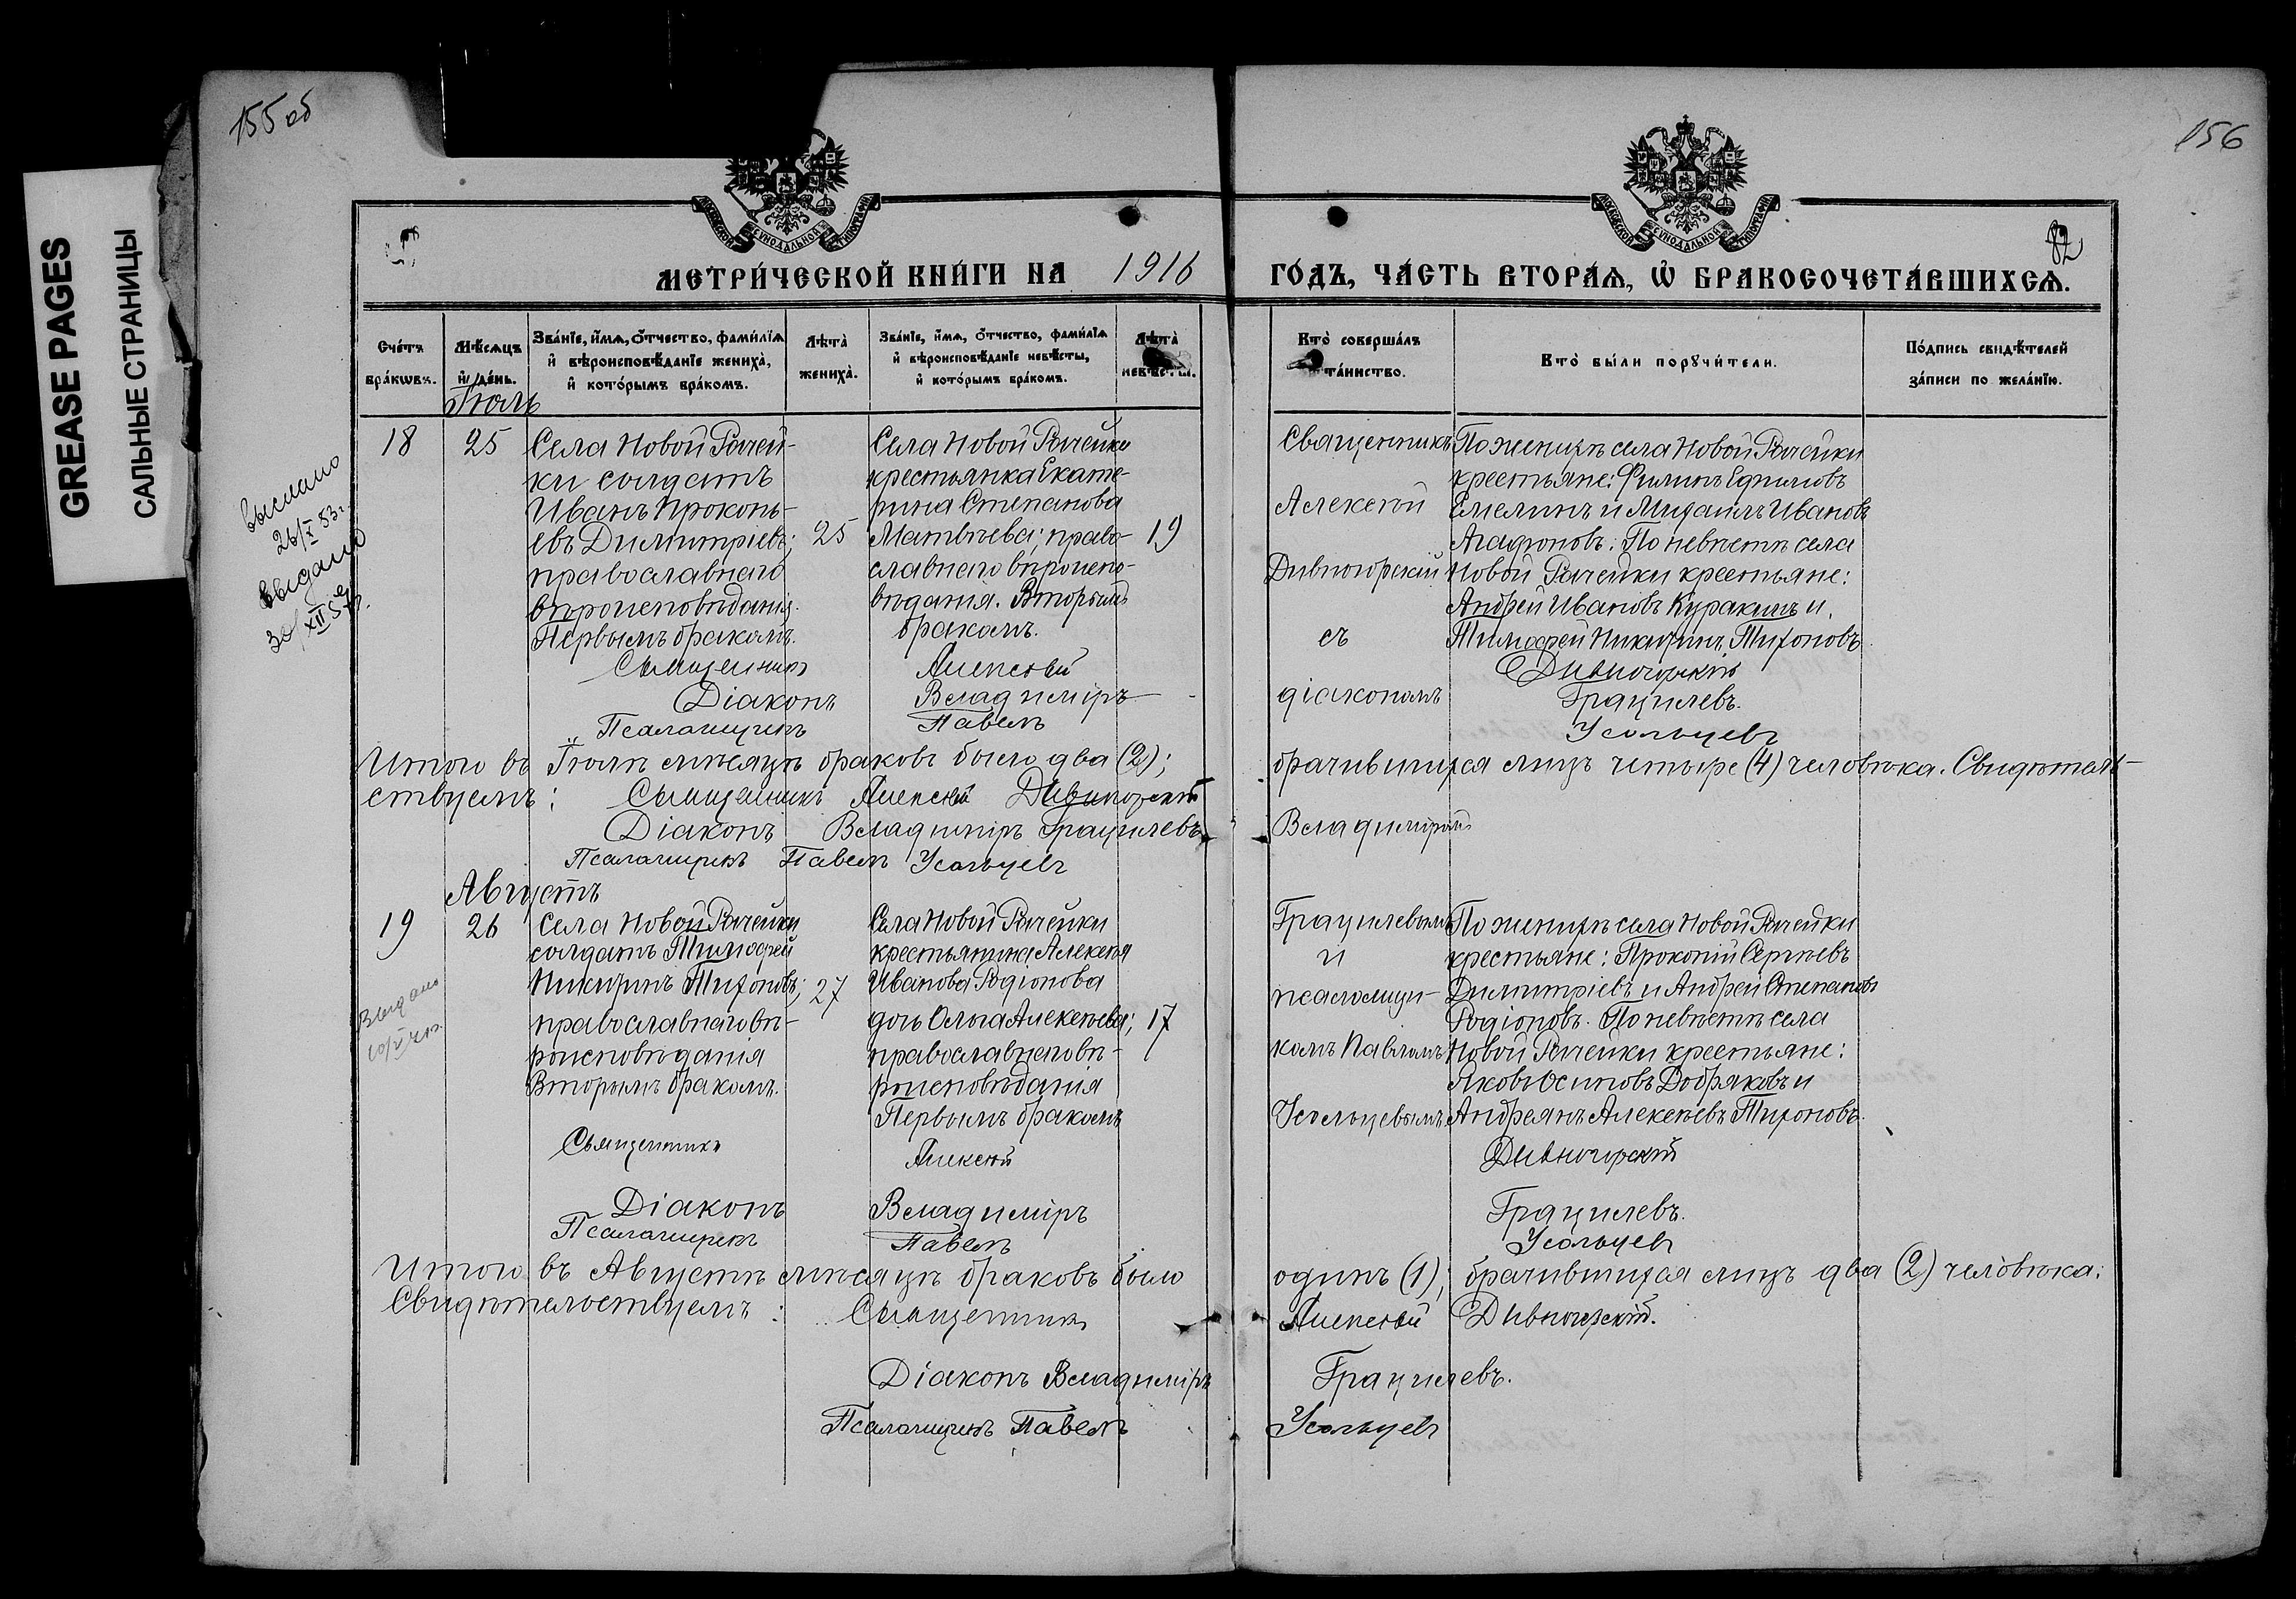 155 об
156
82
GREASE PAGES
САЛЬНЫЕ СТРАНИЦЫ
МЕТРИ́ЧЕСКОЙ КНИ́ГИ НА 1916 ГО́ДЪ, ЧА́СТЬ ВТОРА́Ѧ, Ѽ БРАКОСОЧЕТА́ВШИХСѦ.
Сче́тъ бра́кѡвъ.
Мѣ́сѧцъ и҆ де́нь.
Зва́нїе, и҆́мѧ, ѻ҆́тчество, фами́лїѧ и҆ вѣроисповѣ́данїе жениха̀, и҆ кото́рымъ бра́комъ.
Лѣ̀та жениха̀.
Зва́нїе, и҆́мѧ, ѻ҆́тчество, фами́лїѧ и҆ вѣроисповѣ́данїе невѣ́сты, и҆ кото́рымъ бра́комъ.
Лѣ̀та невѣ́сты.
Кто̀ соверша́лъ та́инство.
Кто̀ бы́ли порꙋчи́тели.
По́дпись свидѣ́телей за́писи по жела́нїю.
Іюль
18
25
Села Новой Рачей-
ки солдатъ
Иванъ Прокопь-
евъ Димитріевъ;
православнаго
вѣроисповѣданія.
Первымъ бракомъ.
25
Села Новой Рачейки
крестьянка Екате-
рина Степанова
Матвѣева; право-
славнаго вѣроиспо-
вѣданія. Вторымъ
бракомъ.
19
Священникъ
Алексѣй
Дивногорскій
съ
діакономъ
По женихѣ села Новой Рачейки
крестьяне: Филипъ Ефимовъ
Емелинъ и Михаилъ Ивановъ
Агафоновъ. По невѣстѣ села
Новой Рачейки крестьяне:
Андрей Ивановъ Куракинъ и
Тимофей Никитинъ Тихоновъ.
Священникъ Алексѣй Дивногорскій
Діаконъ Владиміръ Грацилевъ.
Псаломщикъ Павелъ Усольцевъ
Итого въ Іюлѣ мѣсяцѣ браковъ было два (2); брачившихся лицъ четыре (4) человѣка. Свидѣтель-
ствуемъ: Священникъ Алексѣй Дивногорскій
Діаконъ Владиміръ Грацилевъ
Владиміромъ
Псаломщикъ Павелъ Усольцевъ
Августъ
19
26
Села Новой Рачейки
солдатъ Тимофей
Никитинъ Тихоновъ;
православнаго вѣ-
роисповѣданія
Вторымъ бракомъ.
27
Села Новой Рачейки
крестьянина Алексѣя
Иванова Родіонова
дочь Ольга Алексѣева;
православнаго вѣ-
роисповѣданія
Первымъ бракомъ
17
Грацилевымъ
и
псаломщи-
комъ Павломъ
Усольцевымъ.
По женихѣ села Новой Рачейки
крестьяне: Прокопій Сергѣевъ
Димитріевъ и Андрей Степановъ
Родіоновъ. По невѣстѣ села
Новой Рачейки крестьяне:
Яковъ Осиповъ Добряковъ и
Андреянъ Алексѣевъ Тихоновъ.
Священникъ Алексѣй Дивногорскій
Діаконъ Владиміръ Грацилевъ.
Псаломщикъ Павелъ Усольцевъ
Итого въ Августѣ мѣсяцѣ браковъ было одинъ (1); брачившихся лицъ два (2) человѣка.
Свидѣтельствуемъ: Священникъ Алексѣй Дивногорскій.
Діаконъ Владиміръ Грацилевъ.
Псаломщикъ Павелъ Усольцевъ
выслано
26/X 83г.
выдано
Выдано